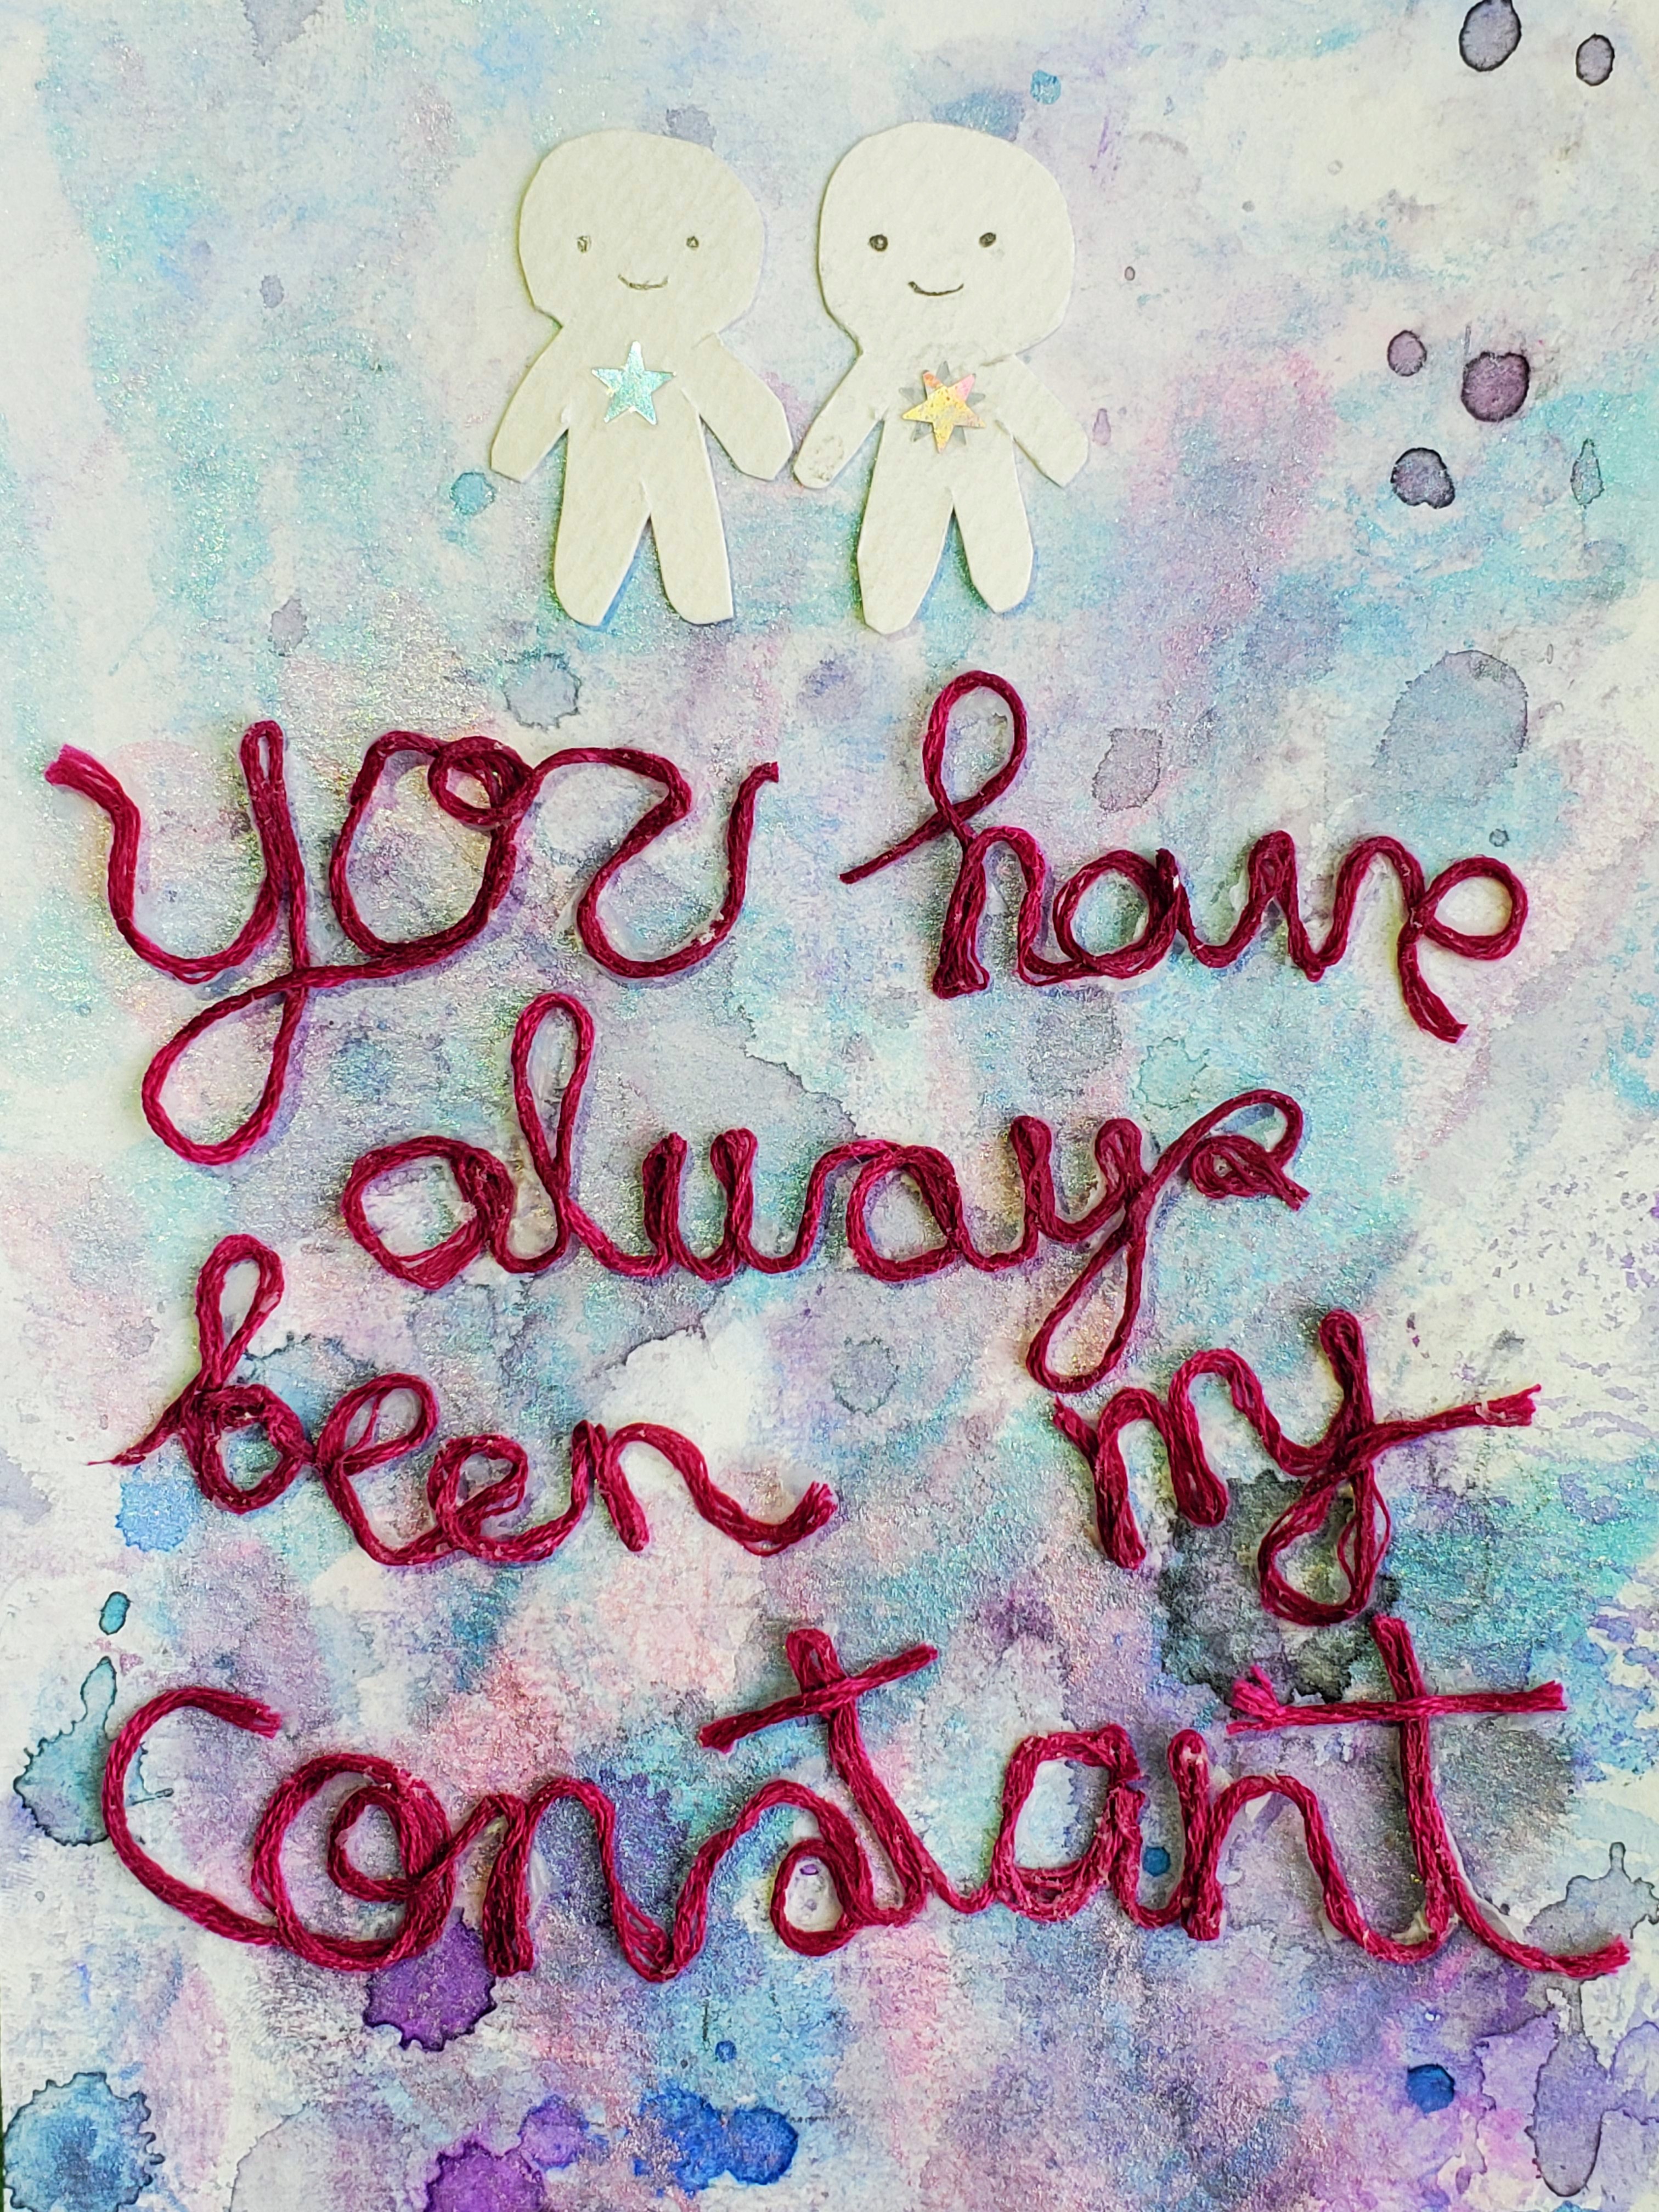 you have
always
been my
Constant